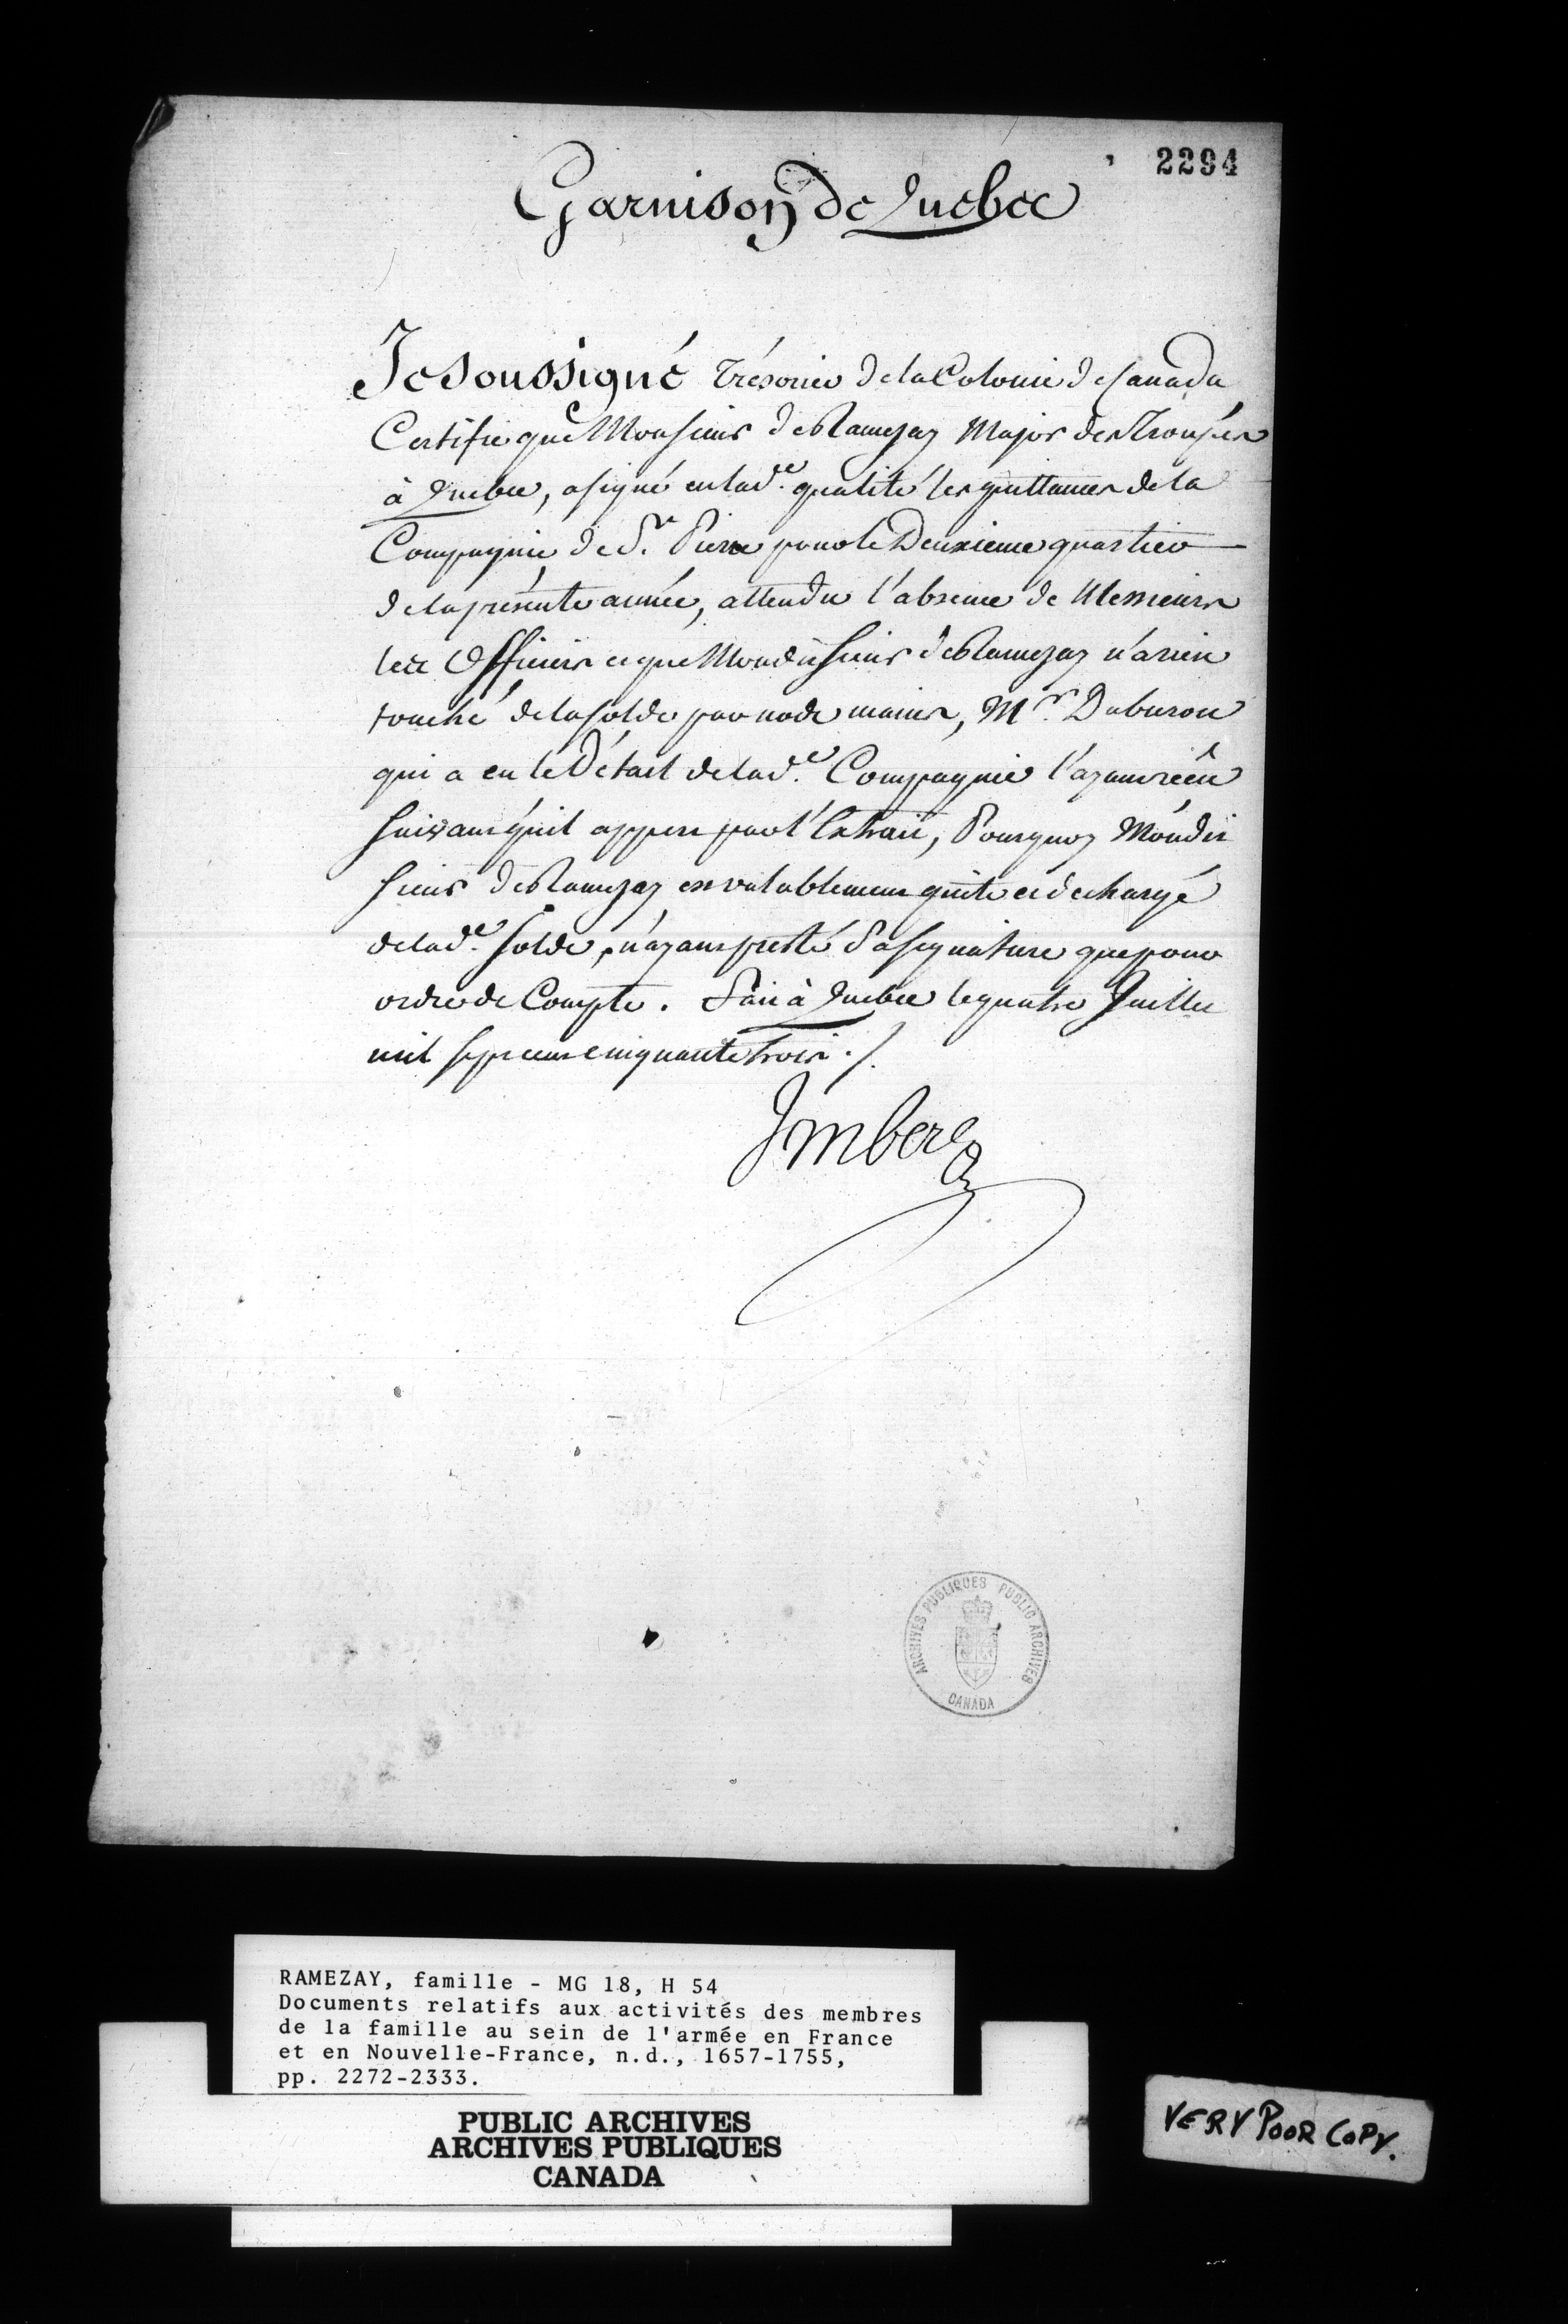 2294
Garnison de Quebec
Je soussigné Trésorier de la Colonie de Canada
Certifie que Monsieur de Ramezay Major des Troupes
à Quebec, a signé en lad.e qualité les quittances de la
Compagnie de S.t Pierre pour le Deuxieme quartier
de la présente année, attendu l'absence de Messieurs
les Officiers et que Mondit sieur de Ramezay n'a rien
touché de la solde par nos de mains, M.r Daburon
qui a eu le Détail de lad.e Compagnie l'ayant reçû
suivant qu'il appert par l'Extrait, Pourquoy Mondit
sieur de Ramezay est valablement quite et déchargé
de lad.e solde, n'ayant presté sa signature que pour
ordre de Compte. Fait à Quebec le quatre Juillet
mil sept cent cinquante trois ./.
Imbert
ARCHIVES PUBLIQUES PUBLIC ARCHIVES
CANADA
RAMEZAY, famille - MG 18, H 54
Documents relatifs aux activités des membres
de la famille au sein de l'armée en France
et en Nouvelle-France, n.d., 1657-1755,
pp. 2272-2333.
PUBLIC ARCHIVES
ARCHIVES PUBLIQUES
CANADA
VERY POOR COPY.